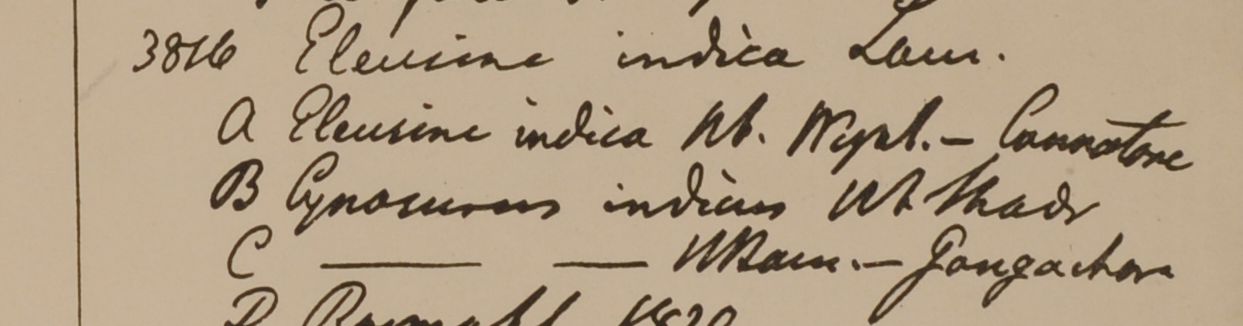 3816 Eleusine indica Lam.
A Eleusine indica Hb. Wight. –
B Cynosurus indicus Hb Madr
C ——— —— HHam. – Gongachora